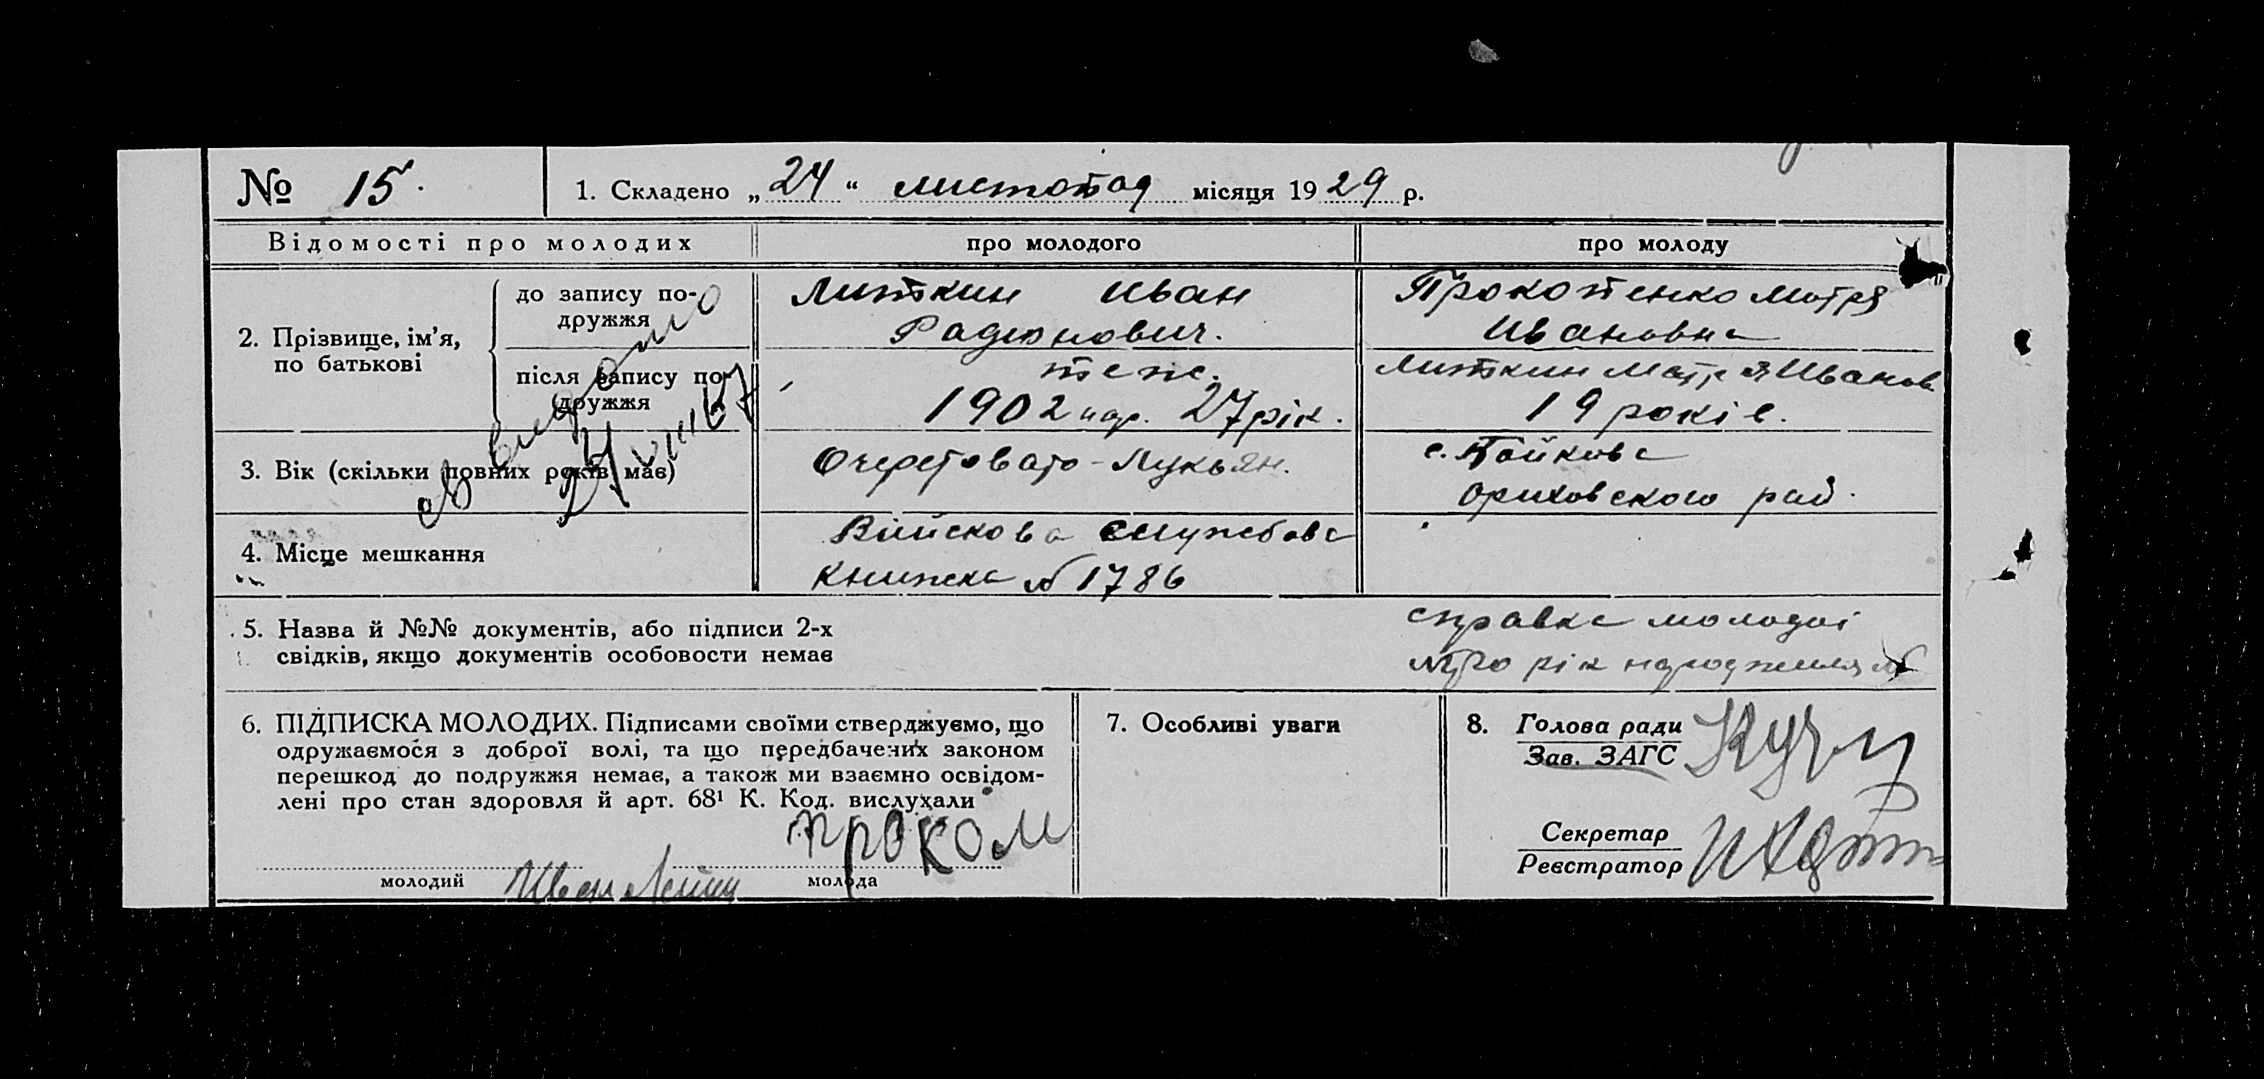 № 15.
1. Складено „24“ листопад місяця 1929 р.
Відомості про молодих
про молодого
про молоду
2. Прізвище, ім’я, по батькові
до запису по-
дружжя
Литкин Иван
Радионович.
Прокопенко Мотря
Ивановна
після запису по-
дружжя
теж.
1902 нар. 27 рік.
Литкин Мотря Иванов
19 років.
3. Вік (скільки повних років має)
Очеретовато-Лукьян.
с. Пойкова
Ориховского рай.
4. Місце мешкання
Війскова служебова
книжка № 1786
5. Назва й №№ документів, або підписи 2-х
свідків, якщо документів особовости немає
справка молодої
про рік народження №
6. ПІДПИСКА МОЛОДИХ. Підписами своїми стверджуємо, що
одружаємося з доброї волі, та що передбачених законом
перешкод до подружжя немає, а також ми взаємно освідом-
лені про стан здоровля й арт. 68¹ К. Код. вислухали
Проком
молодий Иван
молода
7. Особливі уваги
8. Голова ради
Зав. ЗАГС
Секретар
Реєстратор
видано